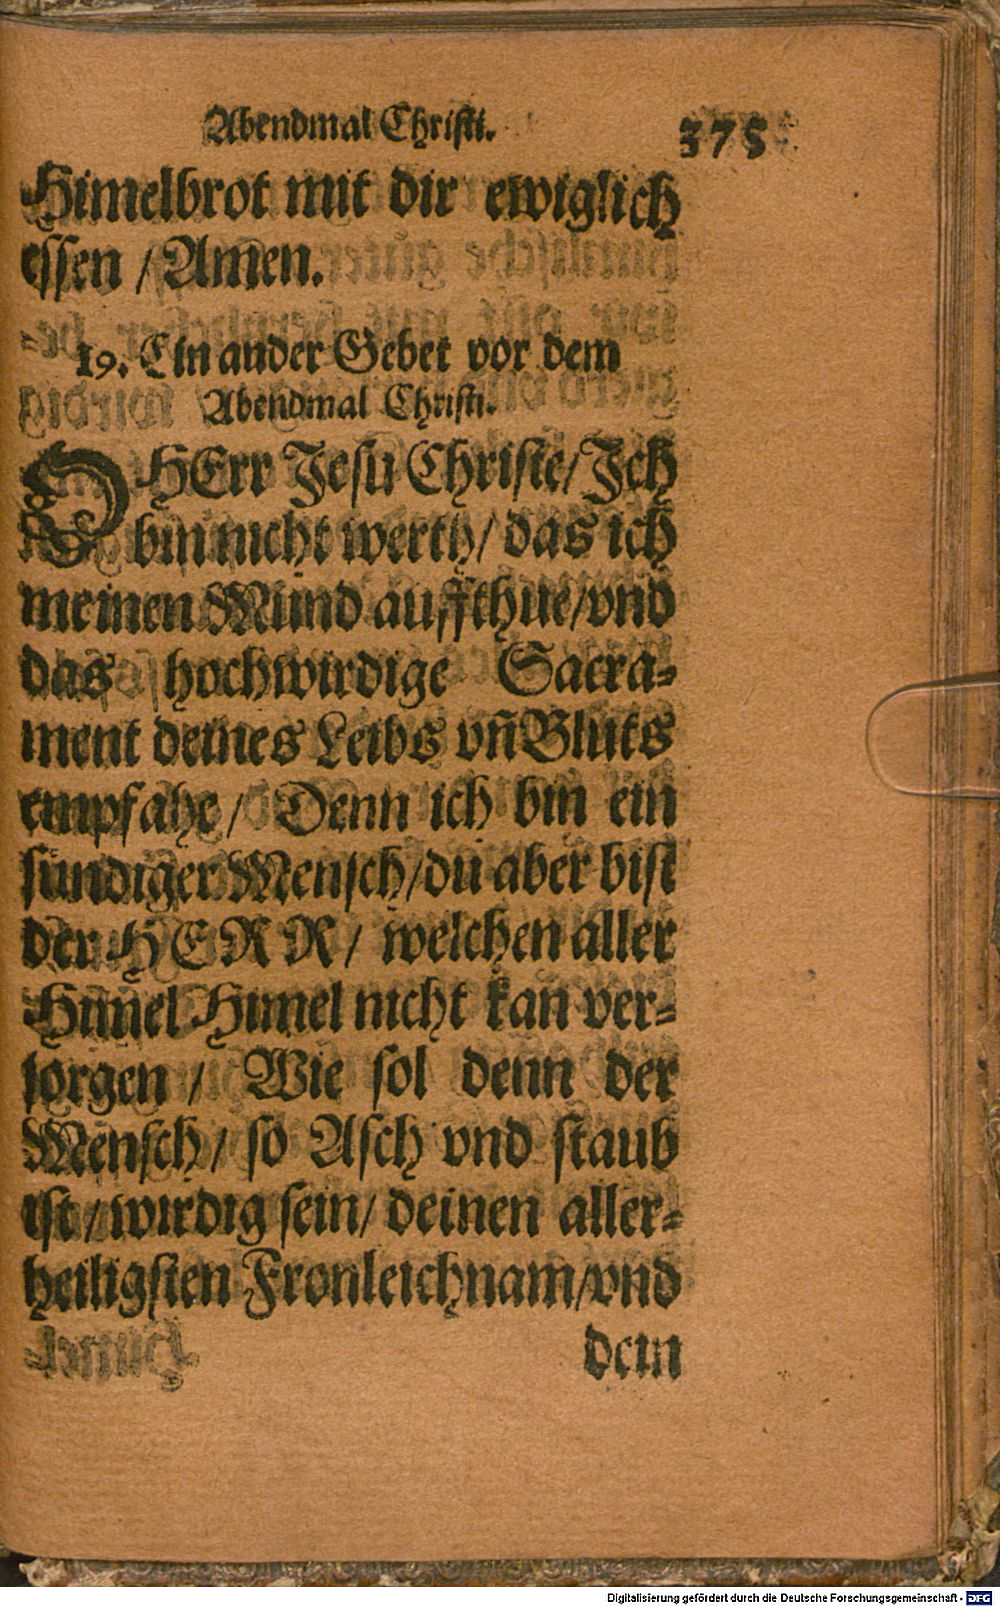 Abendmal Christi. 375
Himelbrot mit dir ewiglich
essen / Amen.
19. Ein ander Gebet vor dem
Abendmal Christi.
O HErr Jesu Christe / Ich
bin nicht werth / das ich
meinen Mund auffthue / vnd
das hochwirdige Sacra-
ment deines Leibs vñ Bluts
empfahe / Denn ich bin ein
sündiger Mensch / du aber bist
der HERR / welchen aller
Himel Himel nicht kan ver-
sorgen / Wie sol denn der
Mensch / so Asch vnd staub
ist / wirdig sein / deinen aller-
heiligsten Fronleichnam / vnd
dein
Digitalisierung gefördert durch die Deutsche Forschungsgemeinschaft - DFG